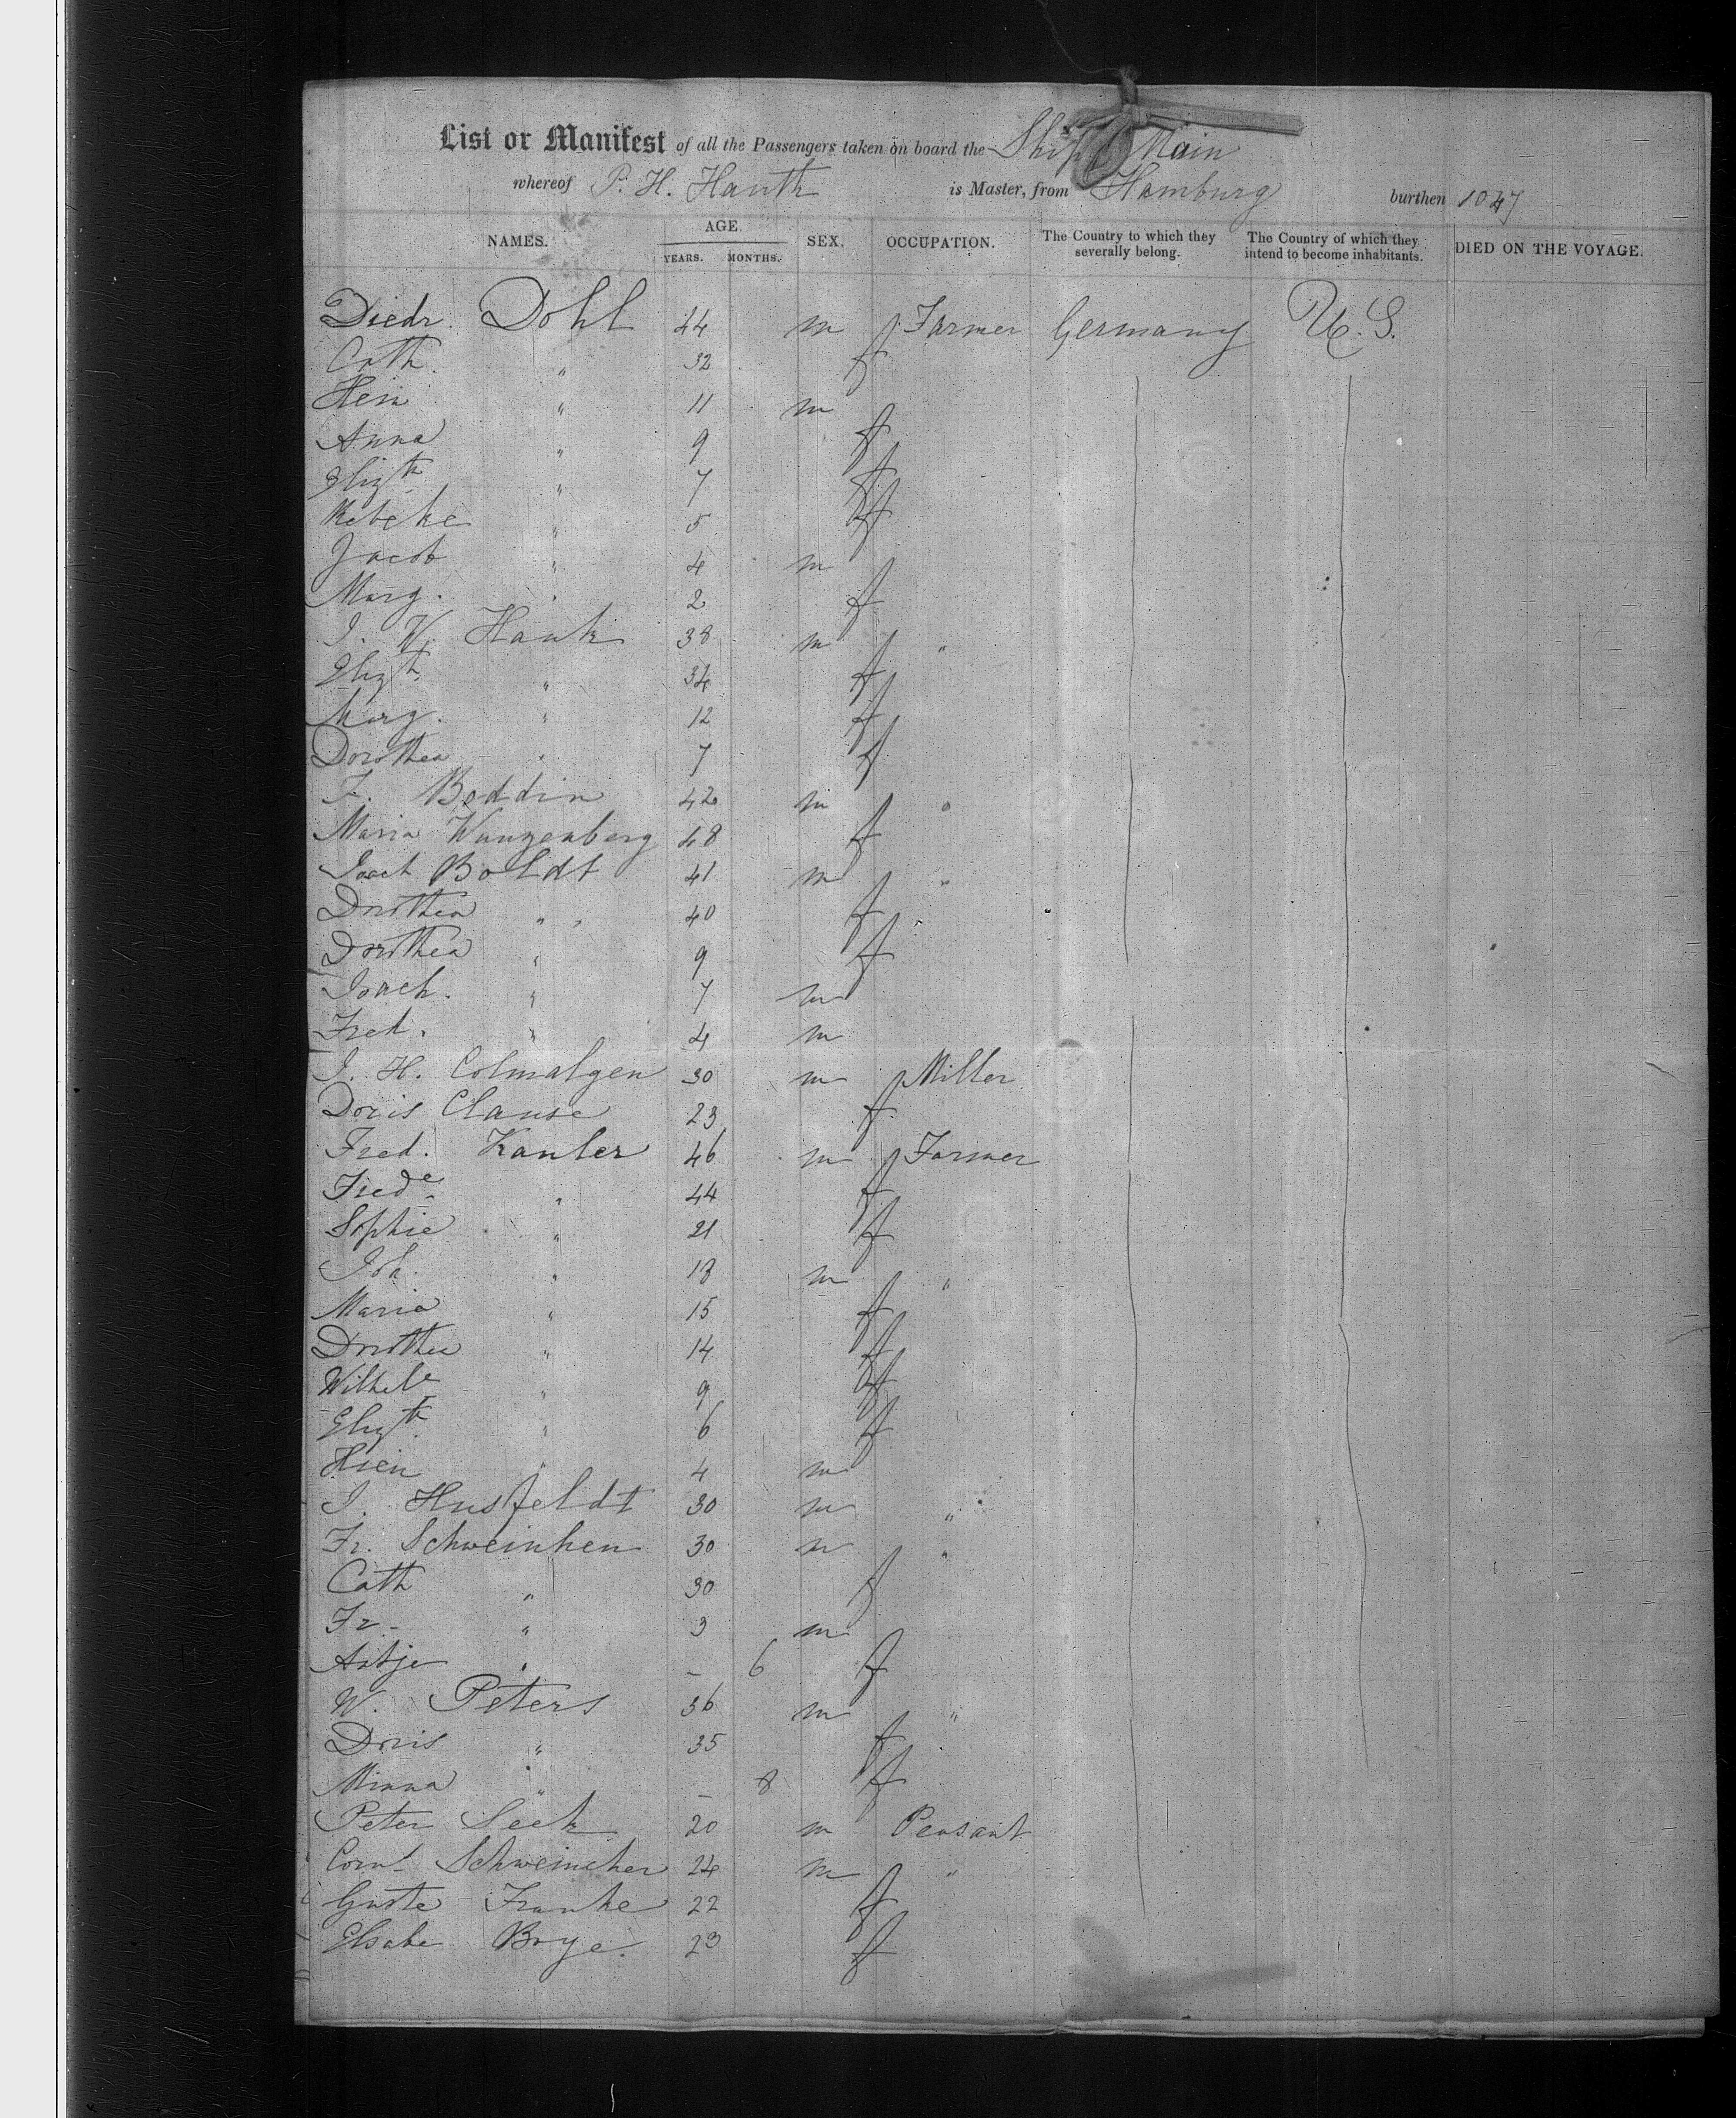 List or Manifest of all the Passengers taken on board the Ship Main
whereof P. H. Hauth is Master, from Hamburg burthen 1047
NAMES. AGE. SEX. OCCUPATION. The Country to which they severally belong. The Country of which they intend to become inhabitants. DIED ON THE VOYAGE.
YEARS. MONTHS.
Diedr. Dohl 44 m Farmer Germany U.S.
Cath. " 32 f
Hein " 11 m
Anna " 9 f
Elizth " 7 f
Rebeke " 5 f
Jacob " 4 m
Marg. " 2 f
J. W. Hank 38 m "
Elizth " 34 f
Marg. " 12 f
Dorothea " 7 f
F. Beddin 42 m "
Maria 48 f
Joach Boldt 41 m "
Dorothea " 40 f
Dorothea " 9 f
Joach. " 7 m
Fred. " 4 m
J. H. Colmalgen 30 m Miller
Doris Clause 23 f
Fred. Kanler 46 m Farmer
Frede " 44 f
Sophie " 21 f
Joh. " 18 m "
Maria " 15 f
Dorothea " 14 f
Wilhele " 9 f
Elizth " 6 f
Hien " 4 m
J. Husfeldt 30 m "
Fr. Schweinhen 30 m "
Cath " 30 f
Fr. " 3 m
Antje " – 6 f
W. Peters 36 m "
Doris " 35 f
Minna " – 8 f
Peter Seek 20 m Peasant
Corn. Schweincher 24 m "
Guste Franke 22 f
Elsabe Boye. 23 f